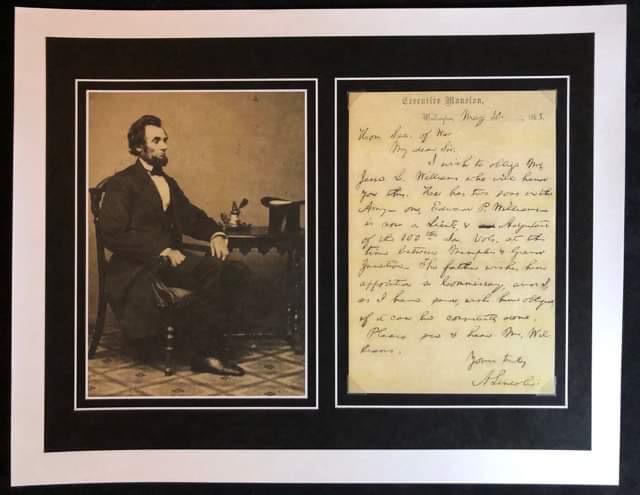 Executive Mansion,
Washington, May 20, 1863.
Hon. Sec. of War
My dear Sir:
I wish to oblige Mr.
Jesse L. Williams who will hand
you this. He has two sons in the
Army one, Edward P. Williams
is now a Lieut. & Adjutant
of the 100th Ia. Vols. at this
time between Memphis & Grand
Junction. The father wishes him
appointed a Commissary, and
as I have said, wish him obliged
if it can be consistently done.
Please see & hear Mr. Wil
liams.
Yours truly
A. Lincoln